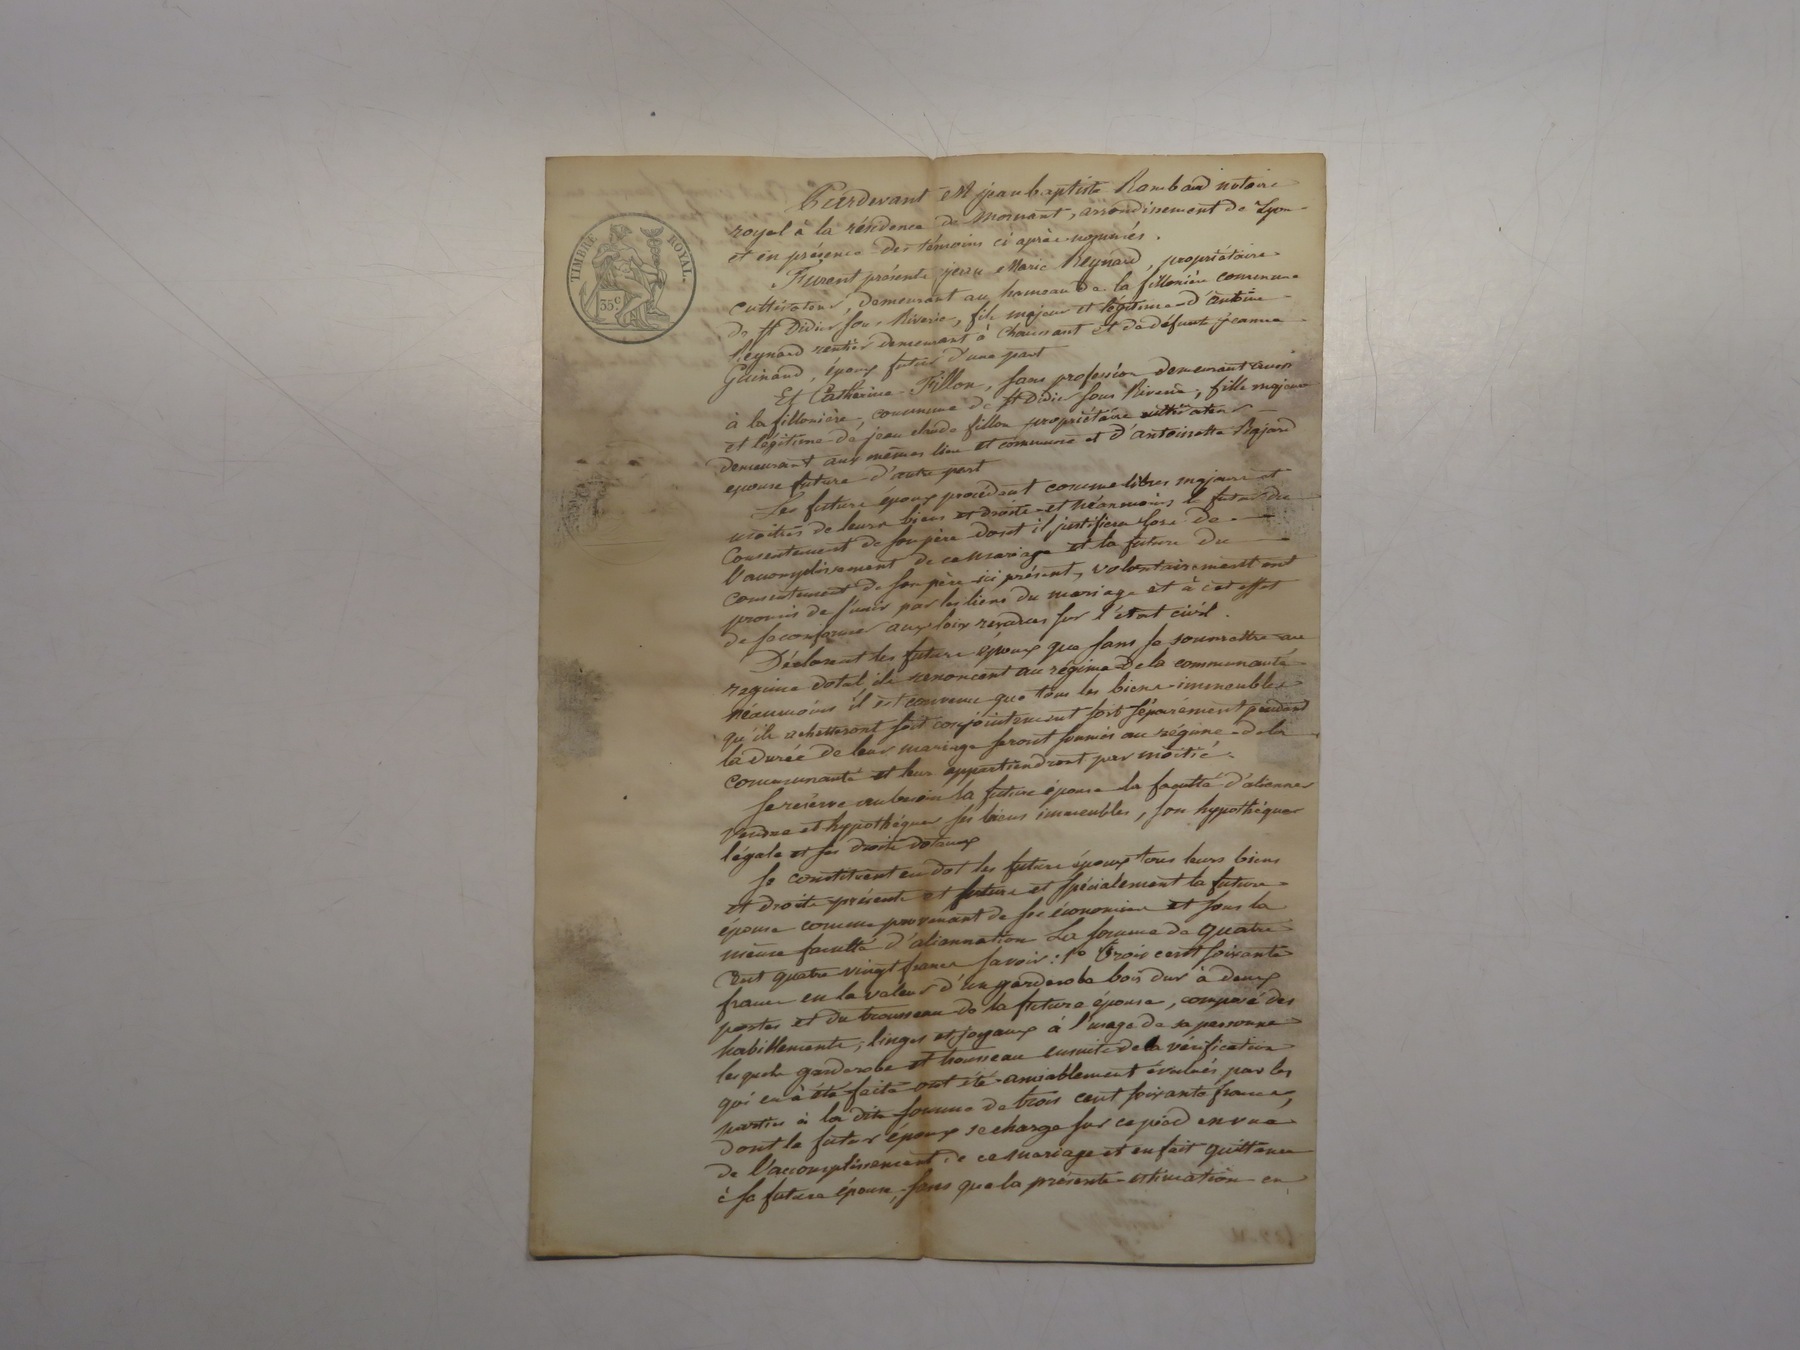 TIMBRE ROYAL
35c
Pardevant Me jean baptiste Rambaud notaire
royal à la résidence de Mornant, arrondissement de Lyon
et en présence des témoins ci après nommés.
Furent présents jean Marie Reynard, propriétaire
cultivateur, demeurant au hameau de la fillonière commune
de St Didier sous Riverie, fils majeur et légitime d'antoine
Reynard rentier demeurant à Chaussant et de défunte jeanne
Guinand, époux futur d'une part
Et Catherine Fillon, sans profession demeurant aussi
à la fillonière, commune de St Didier sous Riverie, fille majeure
et légitime de jean claude fillon propriétaire cultivateur
demeurant aux mêmes lieu et commune et d'antoinette
epouse future d'autre part
Les futurs époux procédant comme libres majeurs et
maitres de leurs biens et droits et néanmoins le futur du
consentement de son père dont il justifiera lors de
l'accomplissement de ce mariage et la future du
consentement de son père ici présent, volontairement ont
promis de s'unir par les liens du mariage et à cet effet
de se conformer aux loix rendues sur l'état civil.
Déclarent les futurs époux que sans se soumettre au
regime dotal ils renoncent au régime de la communauté
néanmoins il est convenu que tous les biens immeubles
qu'ils achetteront soit conjointement soit séparement pendant
la durée de leur mariage seront soumis au régime de la
communauté et leur appartiendront par moitié.
Se réserve au besoin la future épouse la faculté d'aliener
vendre et hypothéquer ses biens immeubles, son hypothéque
légale et ses droits dotaux
Se constituent en dot les futurs époux tous leurs biens
et droits présents et futurs et spécialement la future
épouse comme provenant de ses économies et sous la
même faculté d'aliennation La somme de quatre
cent quatre vingt francs savoir: 1o Trois cent soixante
francs en la valeur d'un garderobe bois dur à deux
portes et du trousseau de la future épouse, composé des
habillements, linges et joyaux à l'usage de sa personne
lesquels garderobe et trousseau ensuite de la vérification
qui en à été faite ont été amiablement évalués par les
parties à la dite somme de trois cent soixante francs,
dont le futur époux se charge sur ce pied en vue
de l'accomplissement de ce mariage et en fait quittance
à sa future épouse, sans que la présente estimation en